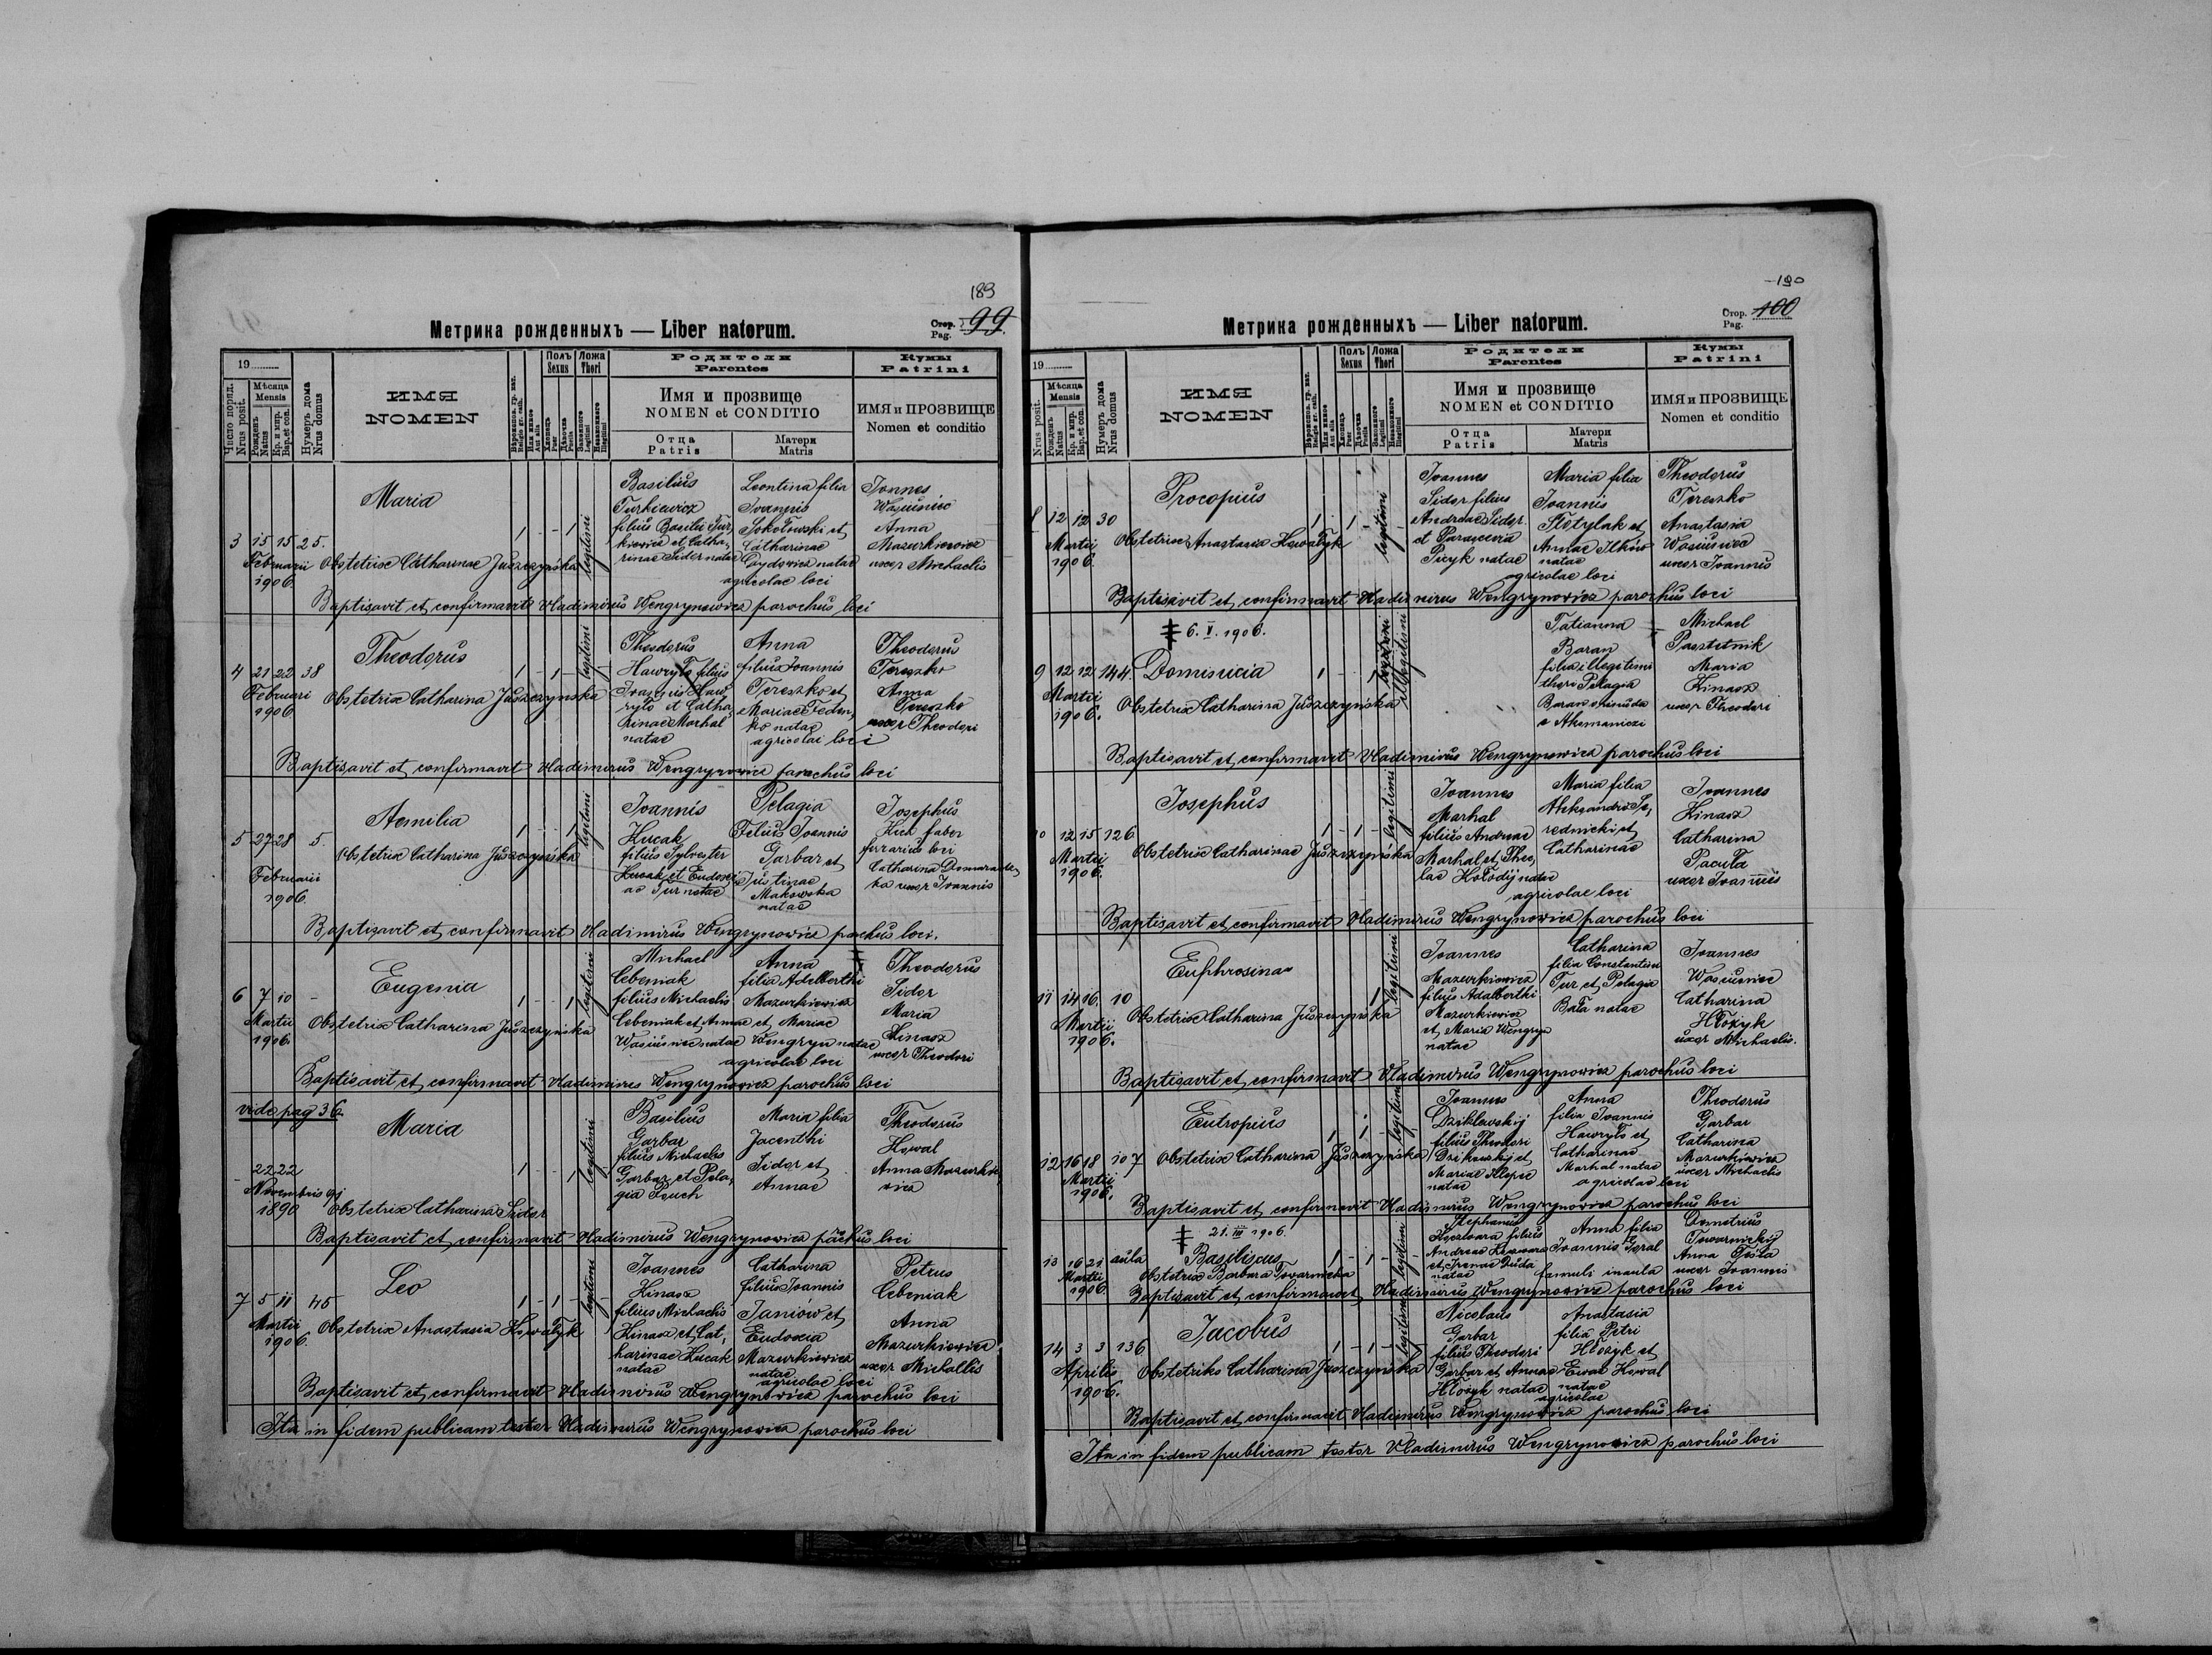 189
Метрика рожденныхъ — Liber natorum.
Стор. Pag. 99
19
Число поряд. Nrus posit.
Мѣсяца Mensis
Рожденъ Natus
Кр. и мир. Bap. et con.
Нумеръ дома Nrus domus
ИМЯ
NOMEN
Полъ Sexus
Хлопецъ Puer
Дѣвочка Puella
Ложа Thori
Законного Legitimi
Незаконного Illegitimi
Родители
Parentes
Имя и прозвище
NOMEN et CONDITIO
Отца
Patris
Матери
Matris
Кумы
Patrini
ИМЯ и ПРОЗВИЩЕ
Nomen et conditio
3 15 15 25.
Februarii
1906.
Maria
Obstetrix Catharinae Juszczyńska
1 - - 1 legitimi
Basilius
Turkiewicz
filius Basilii Tur,
kiewicz et Catha,
rinae Sidor natae
Leontina filia
Joannis
Sokołowski et
Catharinae
Cydowicz natae
agricolae loci
Jonnes
Wasiuniec
Anna
Mazurkiewicz
uxor Michaelis
Baptisavit et confirmavit Vladimirus Wengrynowicz parochus loci
4 21 22 38
Februari
1906
Theodorus
Obstetrix Catharina Juszczyńska
1 - 1 - legitimi
Theodorus
Hawryło filius
Joannis Haw
ryło et Catha,
rinae Marhal
natae
Anna
filius Joannis
Tereszko et
Mariae Fedin,
ko natae
agricolai loci
Theodorus
Tereszko
Anna
Tereszko
uxor Theodori
Baptisavit et confirmavit Vladimirus Wengrynowicz parochus loci
5 27 28 5.
Februarii
1906.
Aemilia
Obstetrix Catharina Juszczyńska
1 - - 1 legitimi
Joannis
Hucak
filius Sylvester
Hucak et Eudoxi
ae Tur natae
Pelagia
Felius Joannis
Garbar et
Justinae
Makowska
natae
Josephus
Kick faber
ferrarius loci
Catharina
uxor Joannis
Baptisavit et confirmavit Vladimirus Wengrynowicz parochus loci.
6 7 10 -
Martii
1906.
Eugenia
Obstetrix Catharina Juszczyńska
1 - - 1 legitimi
Michael
Cebeniak
filius Michaelis
Cebeniak et Annae
Wasiuniec natae
Anna
filia Adelberthi
Mazurkiewicz
et Mariae
Wengryn natae
agricolae loci
Theodorus
Sidor
Maria
Hinasz
uxor Theodori
Baptisavit et confirmavit Vladimirus Wengrynowicz parochus loci
vide pag 36
22 22
Novembris
1890
Maria
Obstetrix Catharina Sidor
1 - - 1 legitimi
Basilius
Garbar
filius Michaelis
Garbar et Pela,
gia Pauch
Maria filia
Jacenthi
Sidor et
Annae
Theodorus
Kowal
Anna Mazurkie,
wicz
Baptisavit et confirmavit Vladimirus Wengrynowicz parochus loci
7 5 11 45
Martii
1906.
Leo
Obstetrix Anastasia Kowałyk
1 - 1 - legitimi
Joannes
Hinasz
filius Michaelis
Hinasz et Cat,
harinae Hucak
natae
Catharina
filius Joannis
Janiów et
Eudoxia
Mazurkiewicz
natae
agricolae loci
Petrus
Cebeniak
Anna
Mazurkiewicz
uxor Michallis
Baptisavit et confirmavit Vladimirus Wengrynowicz parochus loci
Ita in fidem publicam testor Vladimirus Wengrynowicz parochus loci
190
Метрика рожденныхъ — Liber natorum.
Стор. Pag. 100
19
Nrus posit.
Мѣсяца Mensis
Рожденъ Natus
Кр. и мир. Bap. et con.
Нумеръ дома Nrus domus
ИМЯ
NOMEN
Полъ Sexus
Хлопецъ Puer
Дѣвочка Puella
Ложа Thori
Законного Legitimi
Незаконного Illegitimi
Родители
Parentes
Имя и прозвище
NOMEN et CONDITIO
Отца
Patris
Матери
Matris
Кумы
Patrini
ИМЯ и ПРОЗВИЩЕ
Nomen et conditio
8 12 12 30
Martii
1906.
Procopius
Obstetrix Anastasia Kowałyk
1 - 1 - legitimi
Joannes
Sidor filius
Andreae Sidor
et Parascevia
Picyk natae
Maria filia
Joannis
Słotylak et
Annae Ilków
natae
agricolae loci
Theodorus
Tereszko
Anastasia
Wasiuniec
uxor Joannis
Baptisavit et confirmavit Vladimirus Wengrynowicz parochus loci
‡ 6. V. 1906.
9 12 12 144
Martii
1906.
Domnicia
Obstetrix Catharina Juszczyńska
1 - - 1 illegitimi
Tatianna
Baran
filia illegitimi
thori Pelagia
Baran
Michael
Pasztetnik
Maria
Hinasz
uxor Theodori
Baptisavit et confirmavit Vladimirus Wengrynowicz parochus loci
10 12 15 126
Martii
1906.
Josephus
Obstetrix Catharinae Juszczyńska
1 - 1 - legitimi
Joannes
Marhal
filius Andreae
Marhal et Thec,
lae Hołodij natae
Maria filia
Aleksandri Se,
rednicki et
Catharinae
agricolae loci
Joannes
Hinasz
Catharina
Pacuła
uxor Joannis
Baptisavit et confirmavit Vladimirus Wengrynowicz parochus loci
11 14 16. 10
Martii
1906.
Euphrosina
Obstetrix Catharina Juszczyńska
1 legitimi
Joannes
Mazurkiewicz
filius Adalberthi
Mazurkiewicz
et Maria Wengryn
natae
Catharina
filia Constantini
Tur et Pelagia
Bała natae
Joannes
Wasiuniec
Catharina
Hłożyk
uxor Michaelis.
Baptisavit et confirmavit Vladimirus Wengrynowicz parochus loci
12 16 18 107
Martii
1906.
Eutropius
Obstetrix Catharina Juszczyńska
1 - 1 - legitimi
Joannes
Dziklewskij
filius Theodori
et
Mariae
natae
Anna
filia Joannis
Hawryło et
Catharinae
Marhal natae
agricolae loci
Theodorus
Garbar
Catharina
Mazurkiewicz
uxor Michaelis
Baptisavit et confirmavit Vladimirus Wengrynowicz parochus loci
‡ 21. III 1906.
13 16 21 aula
Martii
1906.
Basiliscus
Obstetrix Barbara Towarnicka
1 - 1 - legitimi
Stephanus
filius
Andreas
et Irenae Duda
natae
Anna filia
Joannis Goral
famuli in aula
Demetrius
Towarnickij
Anna Tesla
uxor Joannis
Baptisavit et confirmavit Vladimirus Wengrynowicz parochus loci
14 3 3 136
Aprilis
1906.
Jacobus
Obstetriks Catharina Juszczyńska
1 - 1 - legitimi
Nicolaus
Garbar
filius Theodori
Garbar et Annae
Hłożyk natae
Anastasia
filia Petri
Hłożyk et
Ewae Kowal
natae
agricolae
Baptisavit et confirmavit Vladimirus Wengrynowicz parochus loci
Ita in fidem publicam testor Vladimirus Wengrynowicz parochus loci